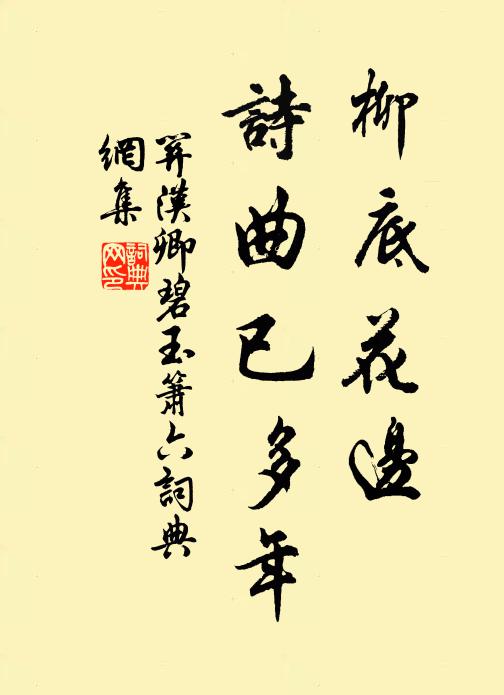 柳底花邊
詩曲已多年
關漢卿碧玉簫六詞典
網集
詞典
網印